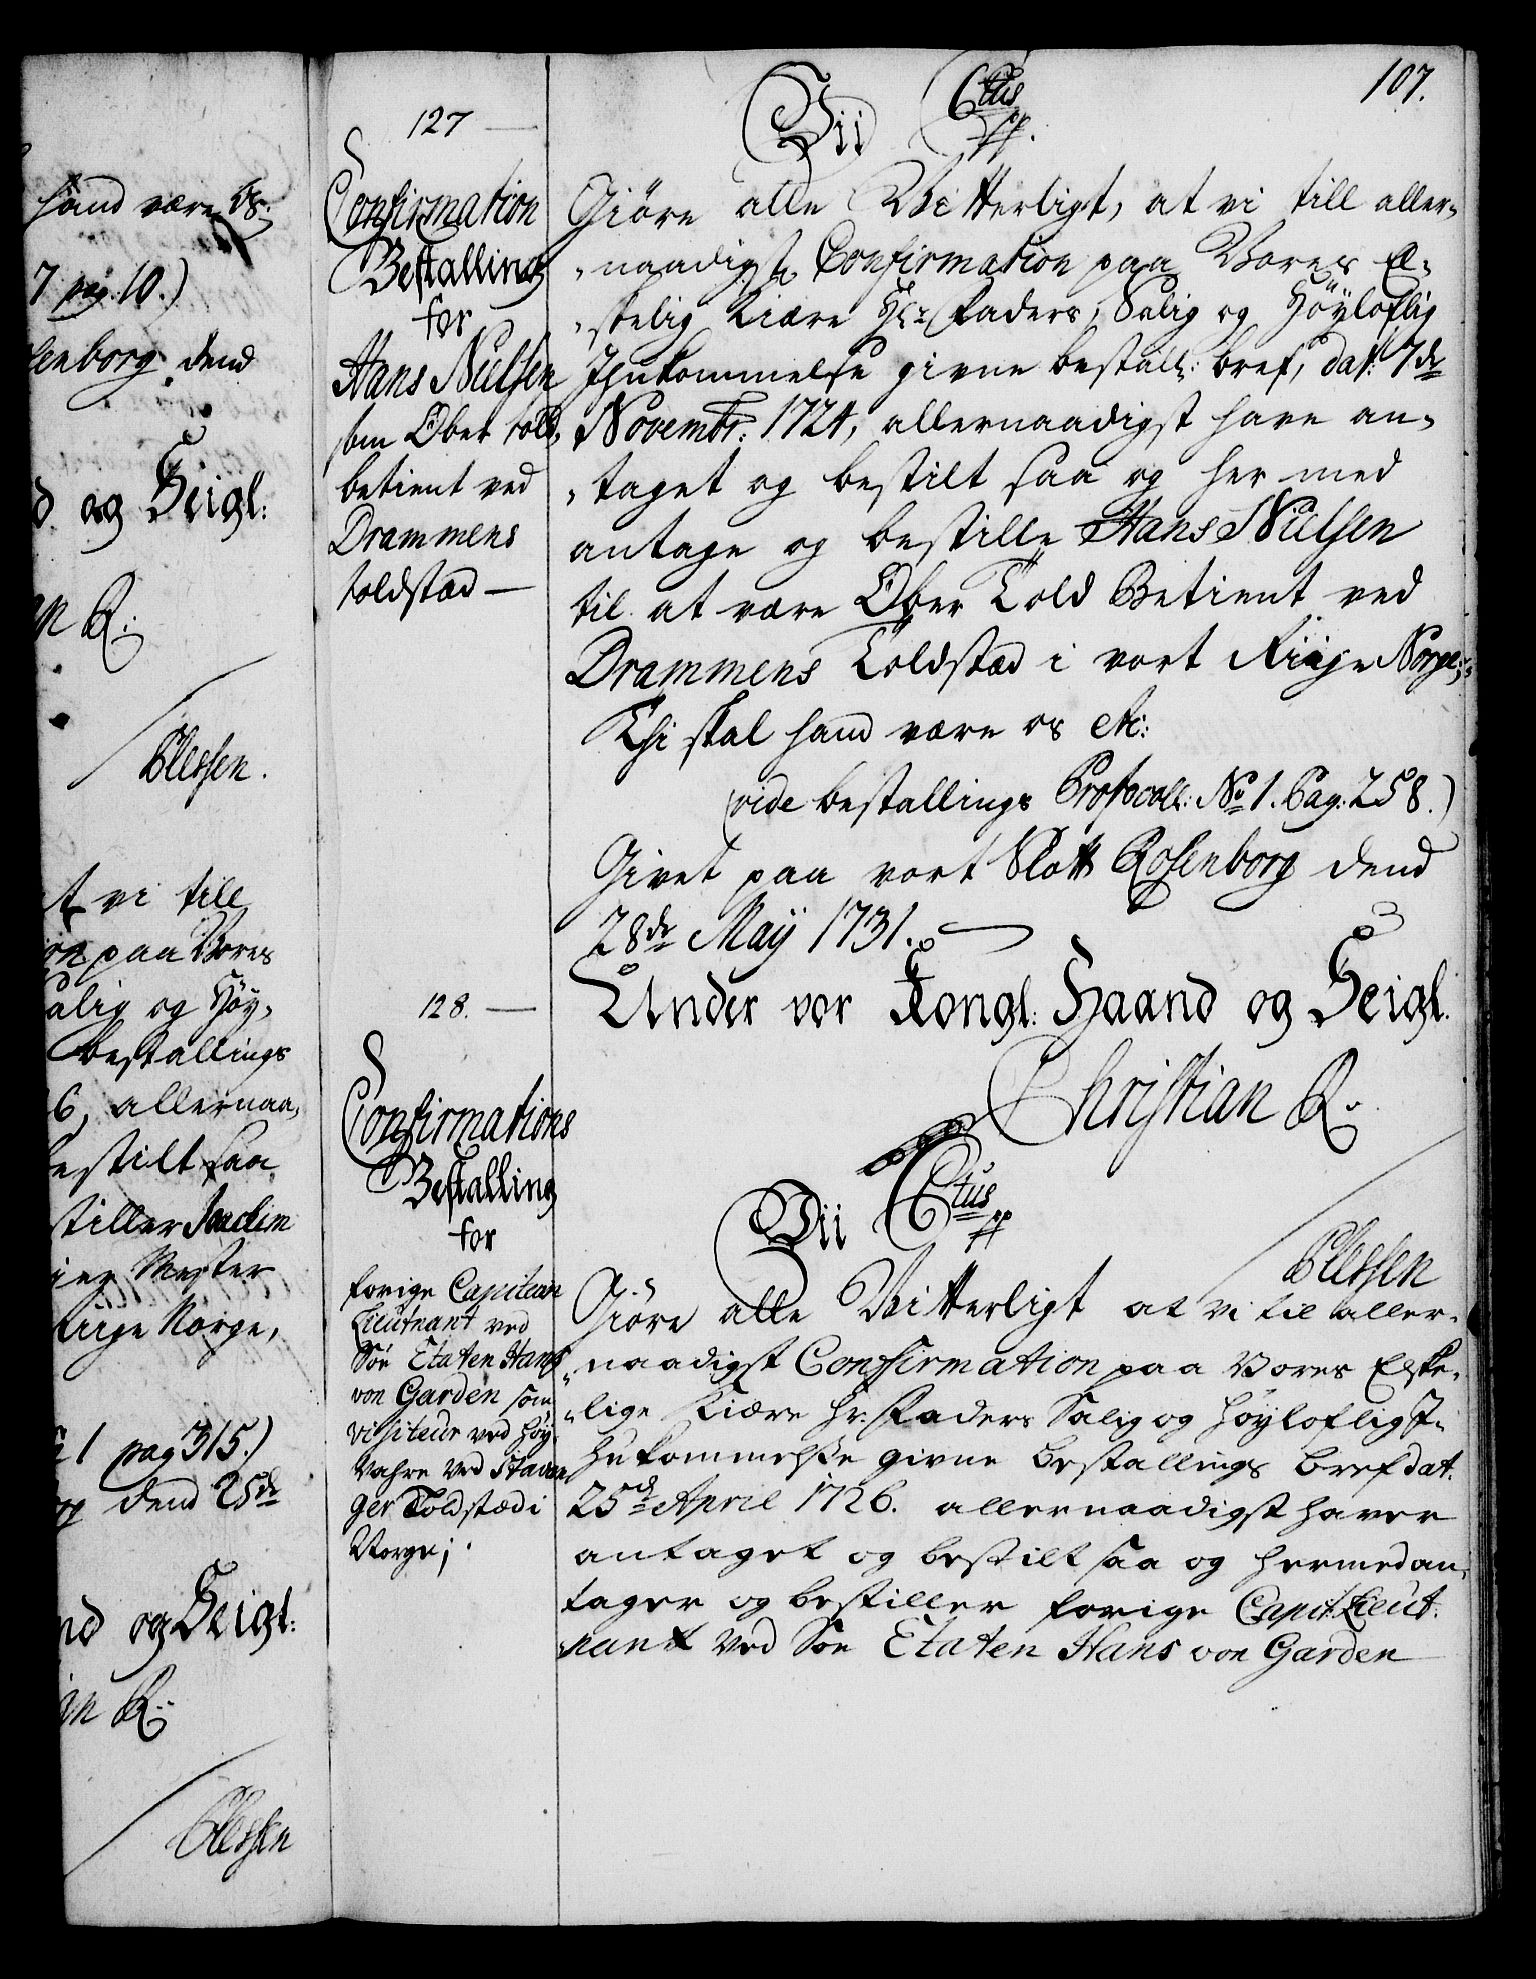 107.
hand være os.
7 pag. 10.)
senborg dend
d og Seigl:
n R:
Plessen.
t vi till
on paa Vores
Salig og Höy-
bestallings
6, allernaa-
bestilt saa
stiller Joachim
Mester
Riige Norge,
1 pag 315.)
dend 25de
nd og Seigl:
ian R:
Plessen
127
Confirmation
Bestalling
for
Hans Nielsen
som Ober told-
betient ved
Drammens
toldstæd
Vii C6tus
Giöre alle Vitterligt, at vi till aller-
-naadigste Confirmation paa Vores El-
-skelig Kiære Hr: Faders, Salig og Höyloflig
Ihukommelse givne bestall: bref, dat: 7de
Novembr: 1724, allernaadigst have an-
-taget og bestilt saa og her med
antage og bestille Hans Nielsen
til at være Ober Told Betient ved
Drammens Toldstæd i vort Riige Norge;
Thi skal hand være os etc:
(vide bestallings Protocoll: No 1. Pag: 258.)
Givet paa vort Slott Rosenborg dend
28de Maÿ 1731.
Under vor Kongl: Haand og Seigl.
Christian R.
Plessen
128.
Confirmations
Bestalling
for
forige Capitain
Lieutnant ved
Söe Etaten Hans
von Garden som
visiteur ved Höy-
Vahre ved Stavan
ger Toldstæd i
Norge;
Vii C6tus
Giöre alle Vitterligt at vi til aller-
-naadigst Confirmation paa Vores Elske-
-lige Kiære Hr. Faders Salig og Höyloflig I-
hukommelse givne bestallings bref dat.
25de April 1726. allernaadigst haver
antaget og bestilt saa og hermed an-
tager og bestiller forige Capit. Lieut-
nant ved Söe Etaten Hans von Garden